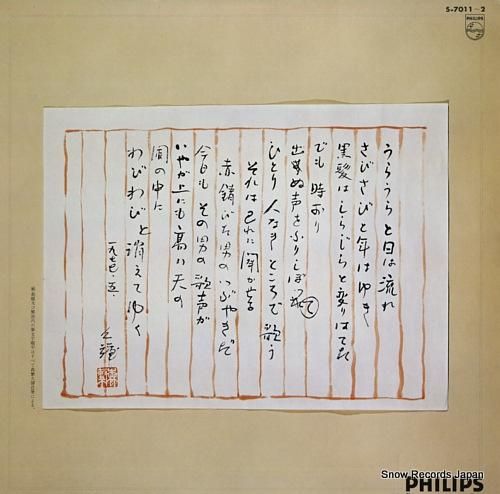 S-7011~2
PHILIPS
うらうらと日は流れ
さびさびと年はゆき
黒髪はしらじらと変りはてた
でも 時おり
出もせぬ声をふりしぼって
ひとり 人なきところで歌う
それは己れに聞かせる
赤錆びた男のつぶやきだ
今日も その男の歌声が
いやが上にも高い天の
周の中に
わびわびと消えてゆく
一九七七、五、
PHILIPS
Snow Records Japan
www.snowrecords.jp